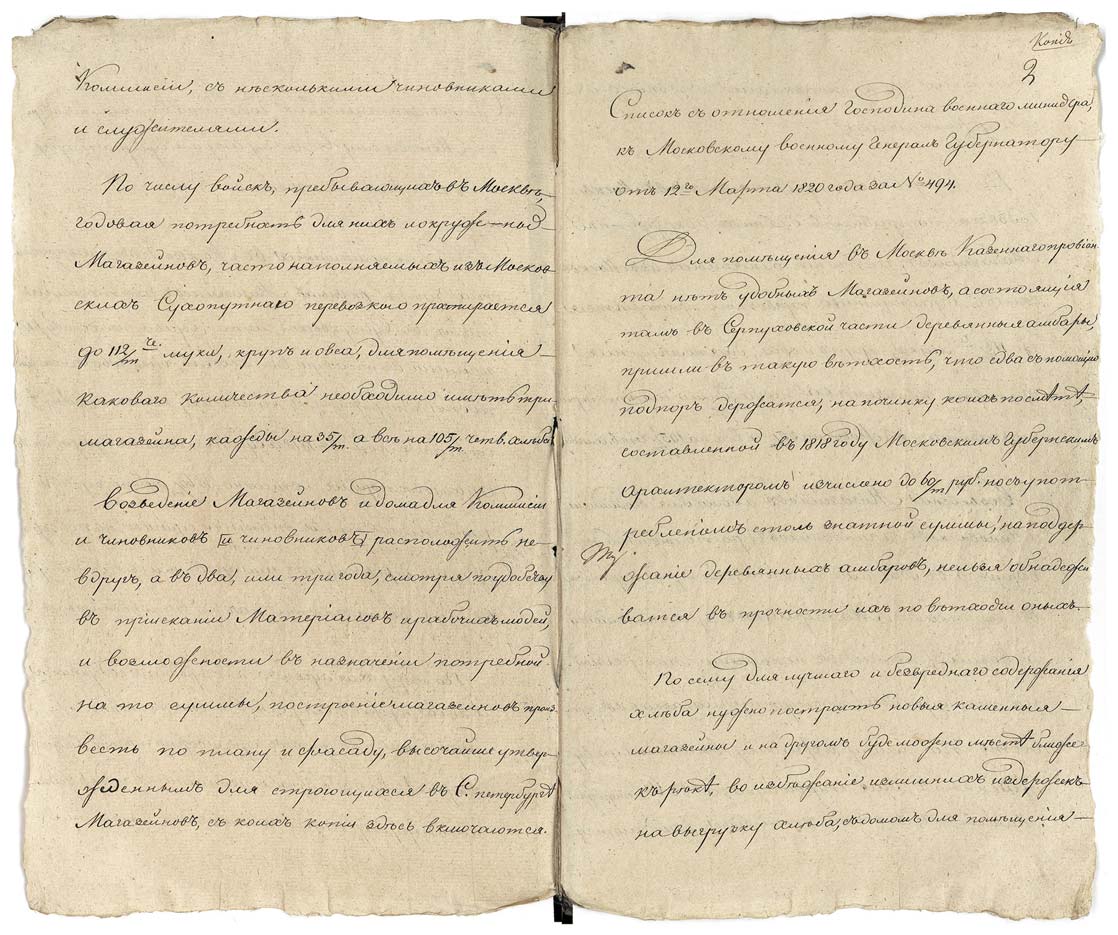 Коммисіи, съ нѣсколькими чиновниками
и служителями.
По числу войскъ, пребывающихъ въ Москвѣ,
годовая потребность для нихъ и окружныхъ
Магазейновъ, часто наполняемыхъ изъ Москов-
скихъ Сухопутнаго перевозкою простирается
до 112/m че. муки, крупъ и овса, для помѣщенія
каковаго количества необходимо имѣть три
магазейна, каждый на 35/m. а всѣ на 105/m четв. хлѣба.
Возведеніе Магазейновъ и дома для Коммисіи
и чиновниковъ [и чиновниковъ] расположить не
вдругъ, а въ два, или три года, смотря по удобству
въ пріисканіи Матеріаловъ и рабочихъ людей,
и возможности въ назначеніи потребной
на то суммы, построеніе магазейновъ произ-
весть по плану и фасаду, высочайше утвер-
жденнымъ для строющихся въ С. петербургѣ
Магазейновъ, съ коихъ копіи здѣсь включаются.
Копія
2
Списокъ съ отношенія Господина военнаго министра,
къ Московскому военному Генералъ Губернатору
отъ 12го Марта 1820 года за № 494.
Для помѣщенія въ Москвѣ Казеннаго провіан-
та нѣтъ удобныхъ Магазейновъ, а состоящія
тамъ въ Серпуховской части деревянныя амбары,
пришли въ такую ветхость, что едва съ помощію
подпоръ держатся, на починку коихъ по смѣтѣ,
составленной въ 1818 году Московскимъ Губернскимъ
Архитекторомъ исчислено до 60/m руб. но съ упот-
ребленіемъ столь знатной суммы, на поддер-
жаніе деревянныхъ амбаровъ, нельзя обнадежи-
ватся въ прочности ихъ по ветхости оныхъ.
По сему для лучшаго и безвреднаго содержанія
хлѣба нужно построить новыя каменныя
магазейны и на другомъ буде можно мѣстѣ ближе
къ рѣкѣ, во избѣжаніе излишнихъ издержекъ
на выгрузку хлѣба, съ домомъ для помѣщенія